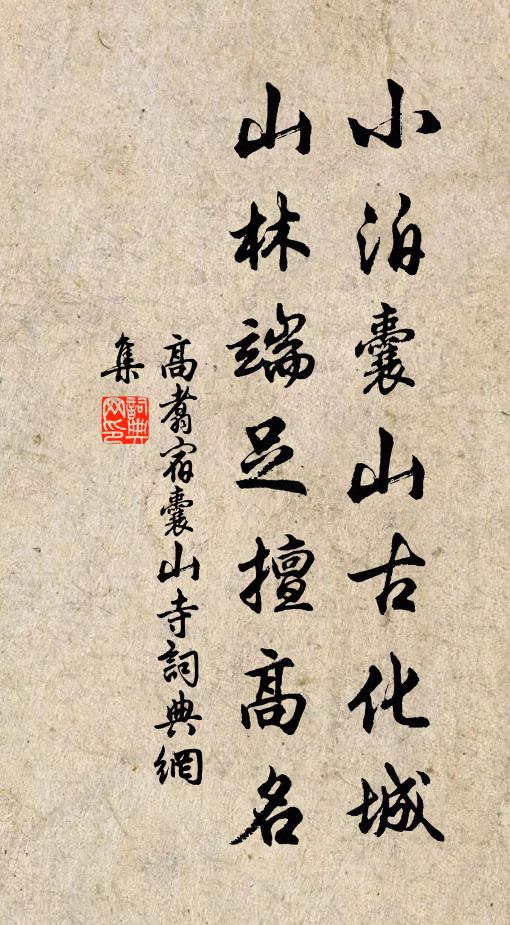 小泊囊山古化城
山林端足擅高名
高翥宿囊山寺詞典網
集
詞典
网印